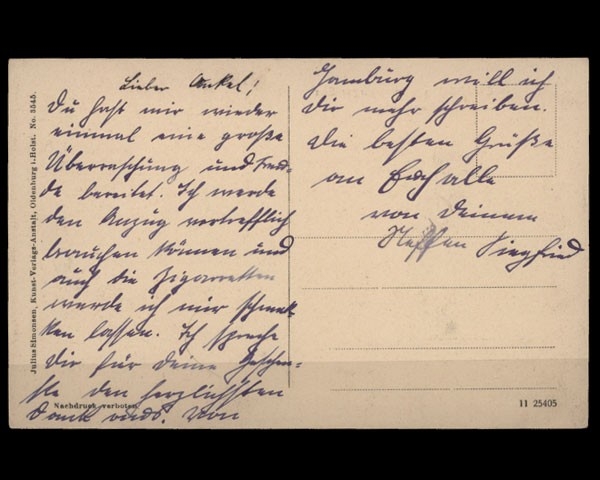 Lieber Onkel!
Du hast mir wieder
einmal eine große
Überraschung und Freu-
de bereitet. Ich werde
den Anzug vortrefflich
brauchen können und
auch die Zigaretten
werde ich mir schmek
ken lassen. Ich spreche
Dir für Deine Geschen-
ke den herzlichsten
Dank aus. Von
Hamburg will ich
Dir mehr schreiben.
Die besten Grüße
an Euch alle
von Deinem
Neffen Siegfried
Julius Simonsen, Kunst-Verlags-Anstalt, Oldenburg i. Holst. No. 5545.
Nachdruck verboten
11 25405